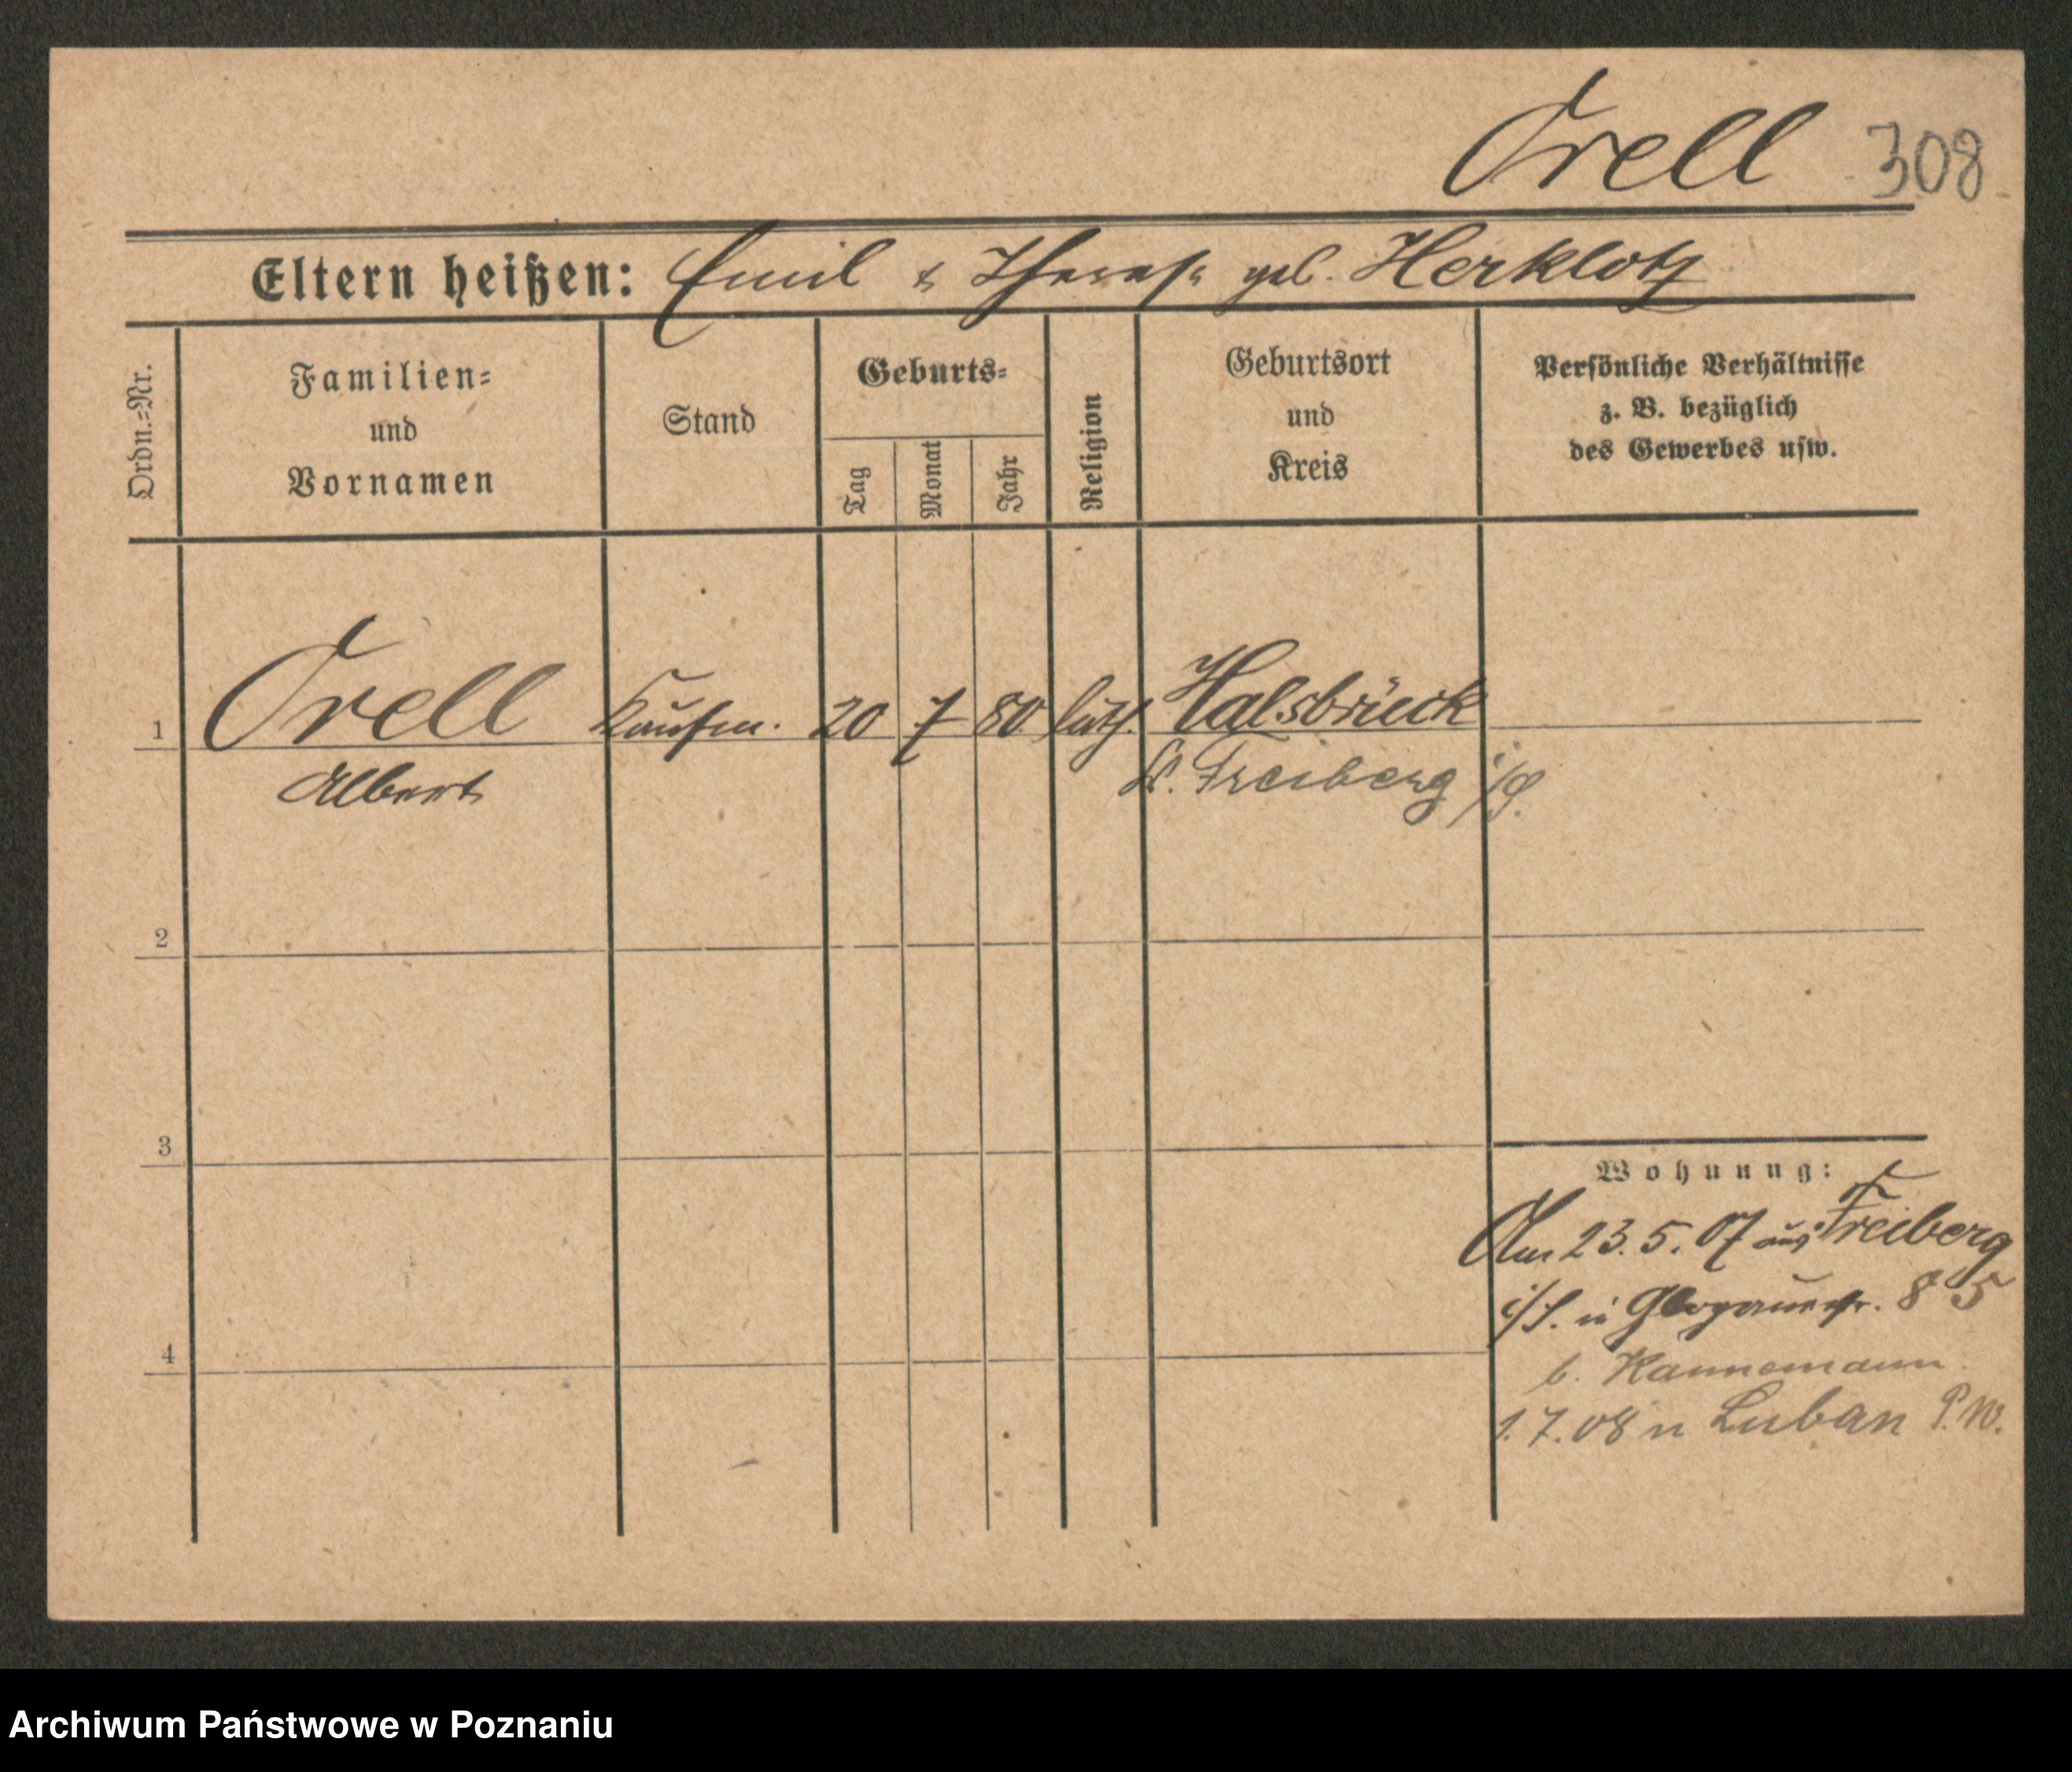 Orell 308
Eltern heißen: Emil & Therese geb. Herklotz
Ordn.=Nr.
Familien=
und
Vornamen
Stand
Geburts=
Tag
Monat
Jahr
Religion
Geburtsort
und
Kreis
Persönliche Verhältnisse
z. B. bezüglich
des Gewerbes usw.
1 Orell Kaufm. 20 7 80 luth. Halsbrück
Albert K. Freiberg i/S.
2
3
Wohnung:
Am 23.5.07 aus Freiberg
i/S. in Glogauerstr. 85
4
b. Hannemann
1.7.08 n Luban P.W.
Archiwum Państwowe w Poznaniu